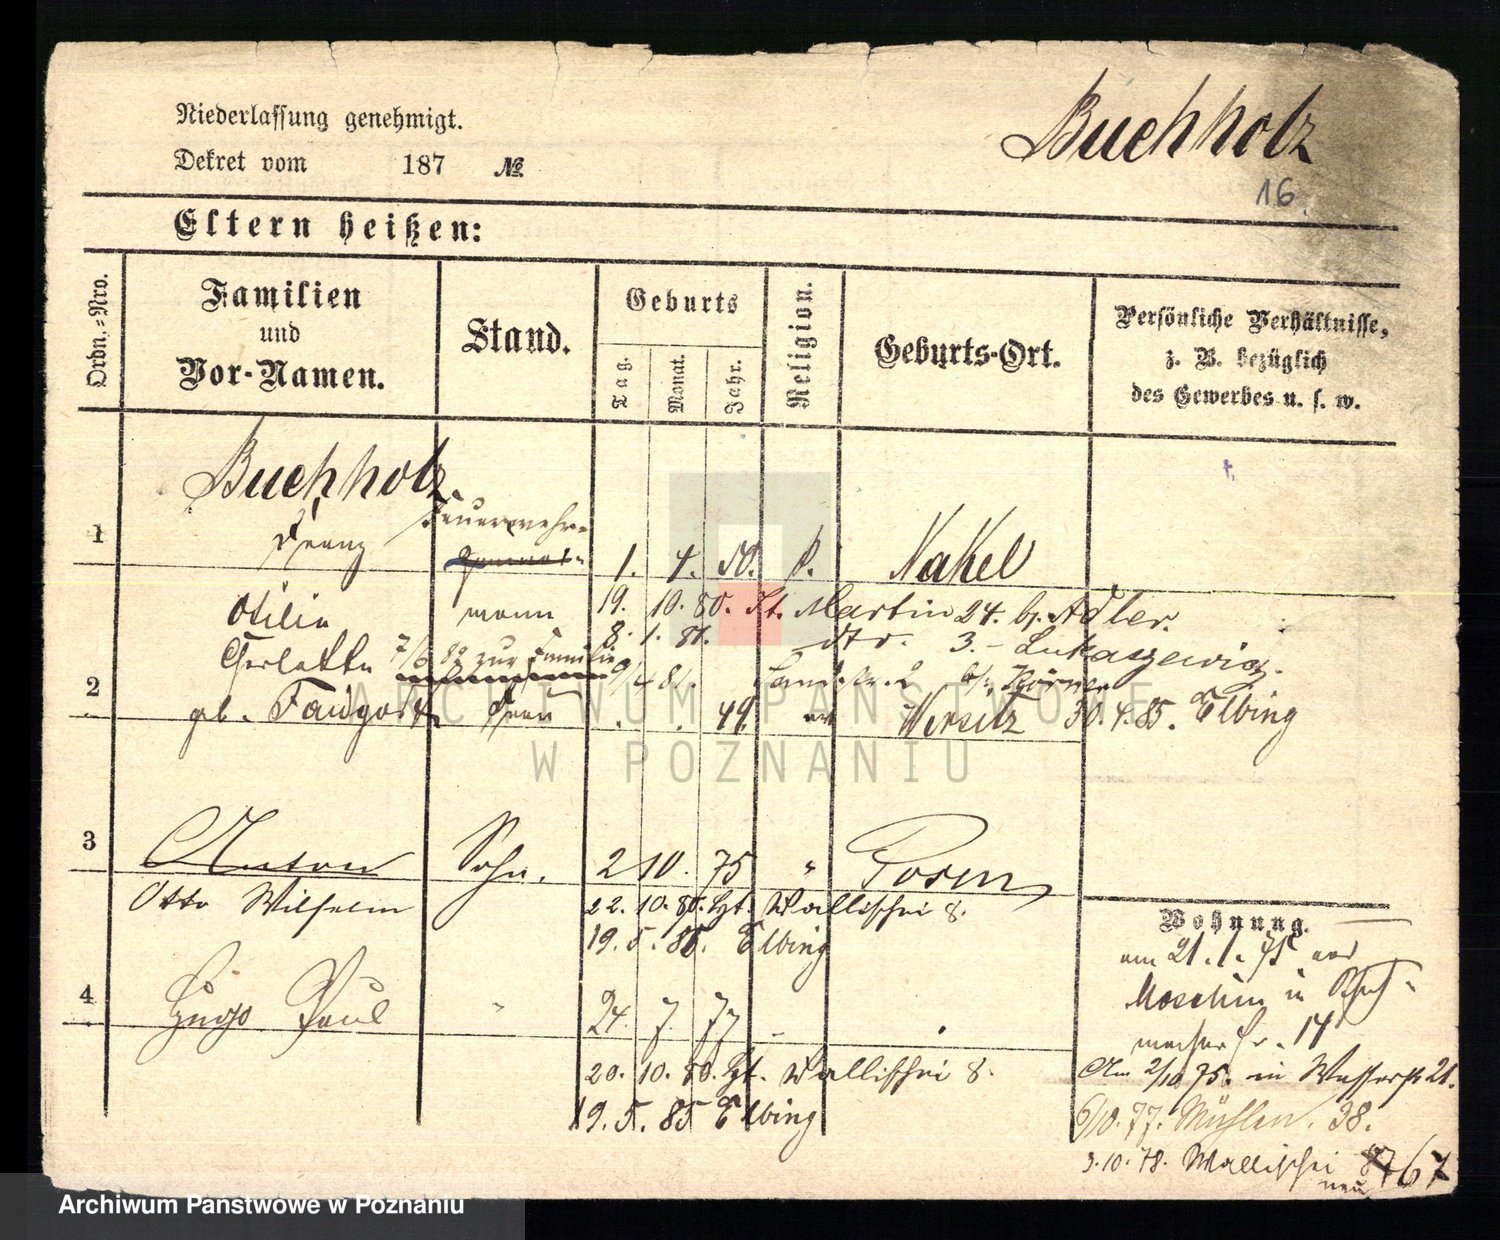 Niederlassung genehmigt.
Dekret vom 187 №
Buchholz
16.
Eltern heißen:
Ordn.=Nro.
Familien
und
Vor-Namen.
Stand.
Geburts
Tag.
Monat.
Jahr.
Religion.
Geburts-Ort.
Persönliche Verhältnisse,
z. B. bezüglich
des Gewerbes u. s. w.
Buchholz
1 Franz Feuerwehr= 1. 4. 50. k. Nakel
mann
Otilie 19. 10. 80. St. Martin 24. b. Adler.
8. 1. 81. dto. 3. - Lukaszewicz.
7/6 82 zur Familie
9/4 81. b. Körner
2 geb. Frau . . 49. Wirsitz 30. 4. 85. Elbing
3 Anton Sohn. 2 10. 75 " Posen
Otto Wilhelm 22. 10. 80. Wallischei 8.
19. 5. 85. Elbing
4 Hugo Paul " 24. 7. 77
20. 10. 80. Wallischei 8.
19. 5. 85 Elbing
Wohnung.
am 21. 1. 75 aus
Moschin in Schuh=
macherstr. 14
Am 2/10 75. in Wasserstr 21.
6/10. 77. Mühlen. 38.
3. 10. 78. Wallischei 67
neu
ARCHIWUM PAŃSTWOWE
W POZNANIU
Archiwum Państwowe w Poznaniu